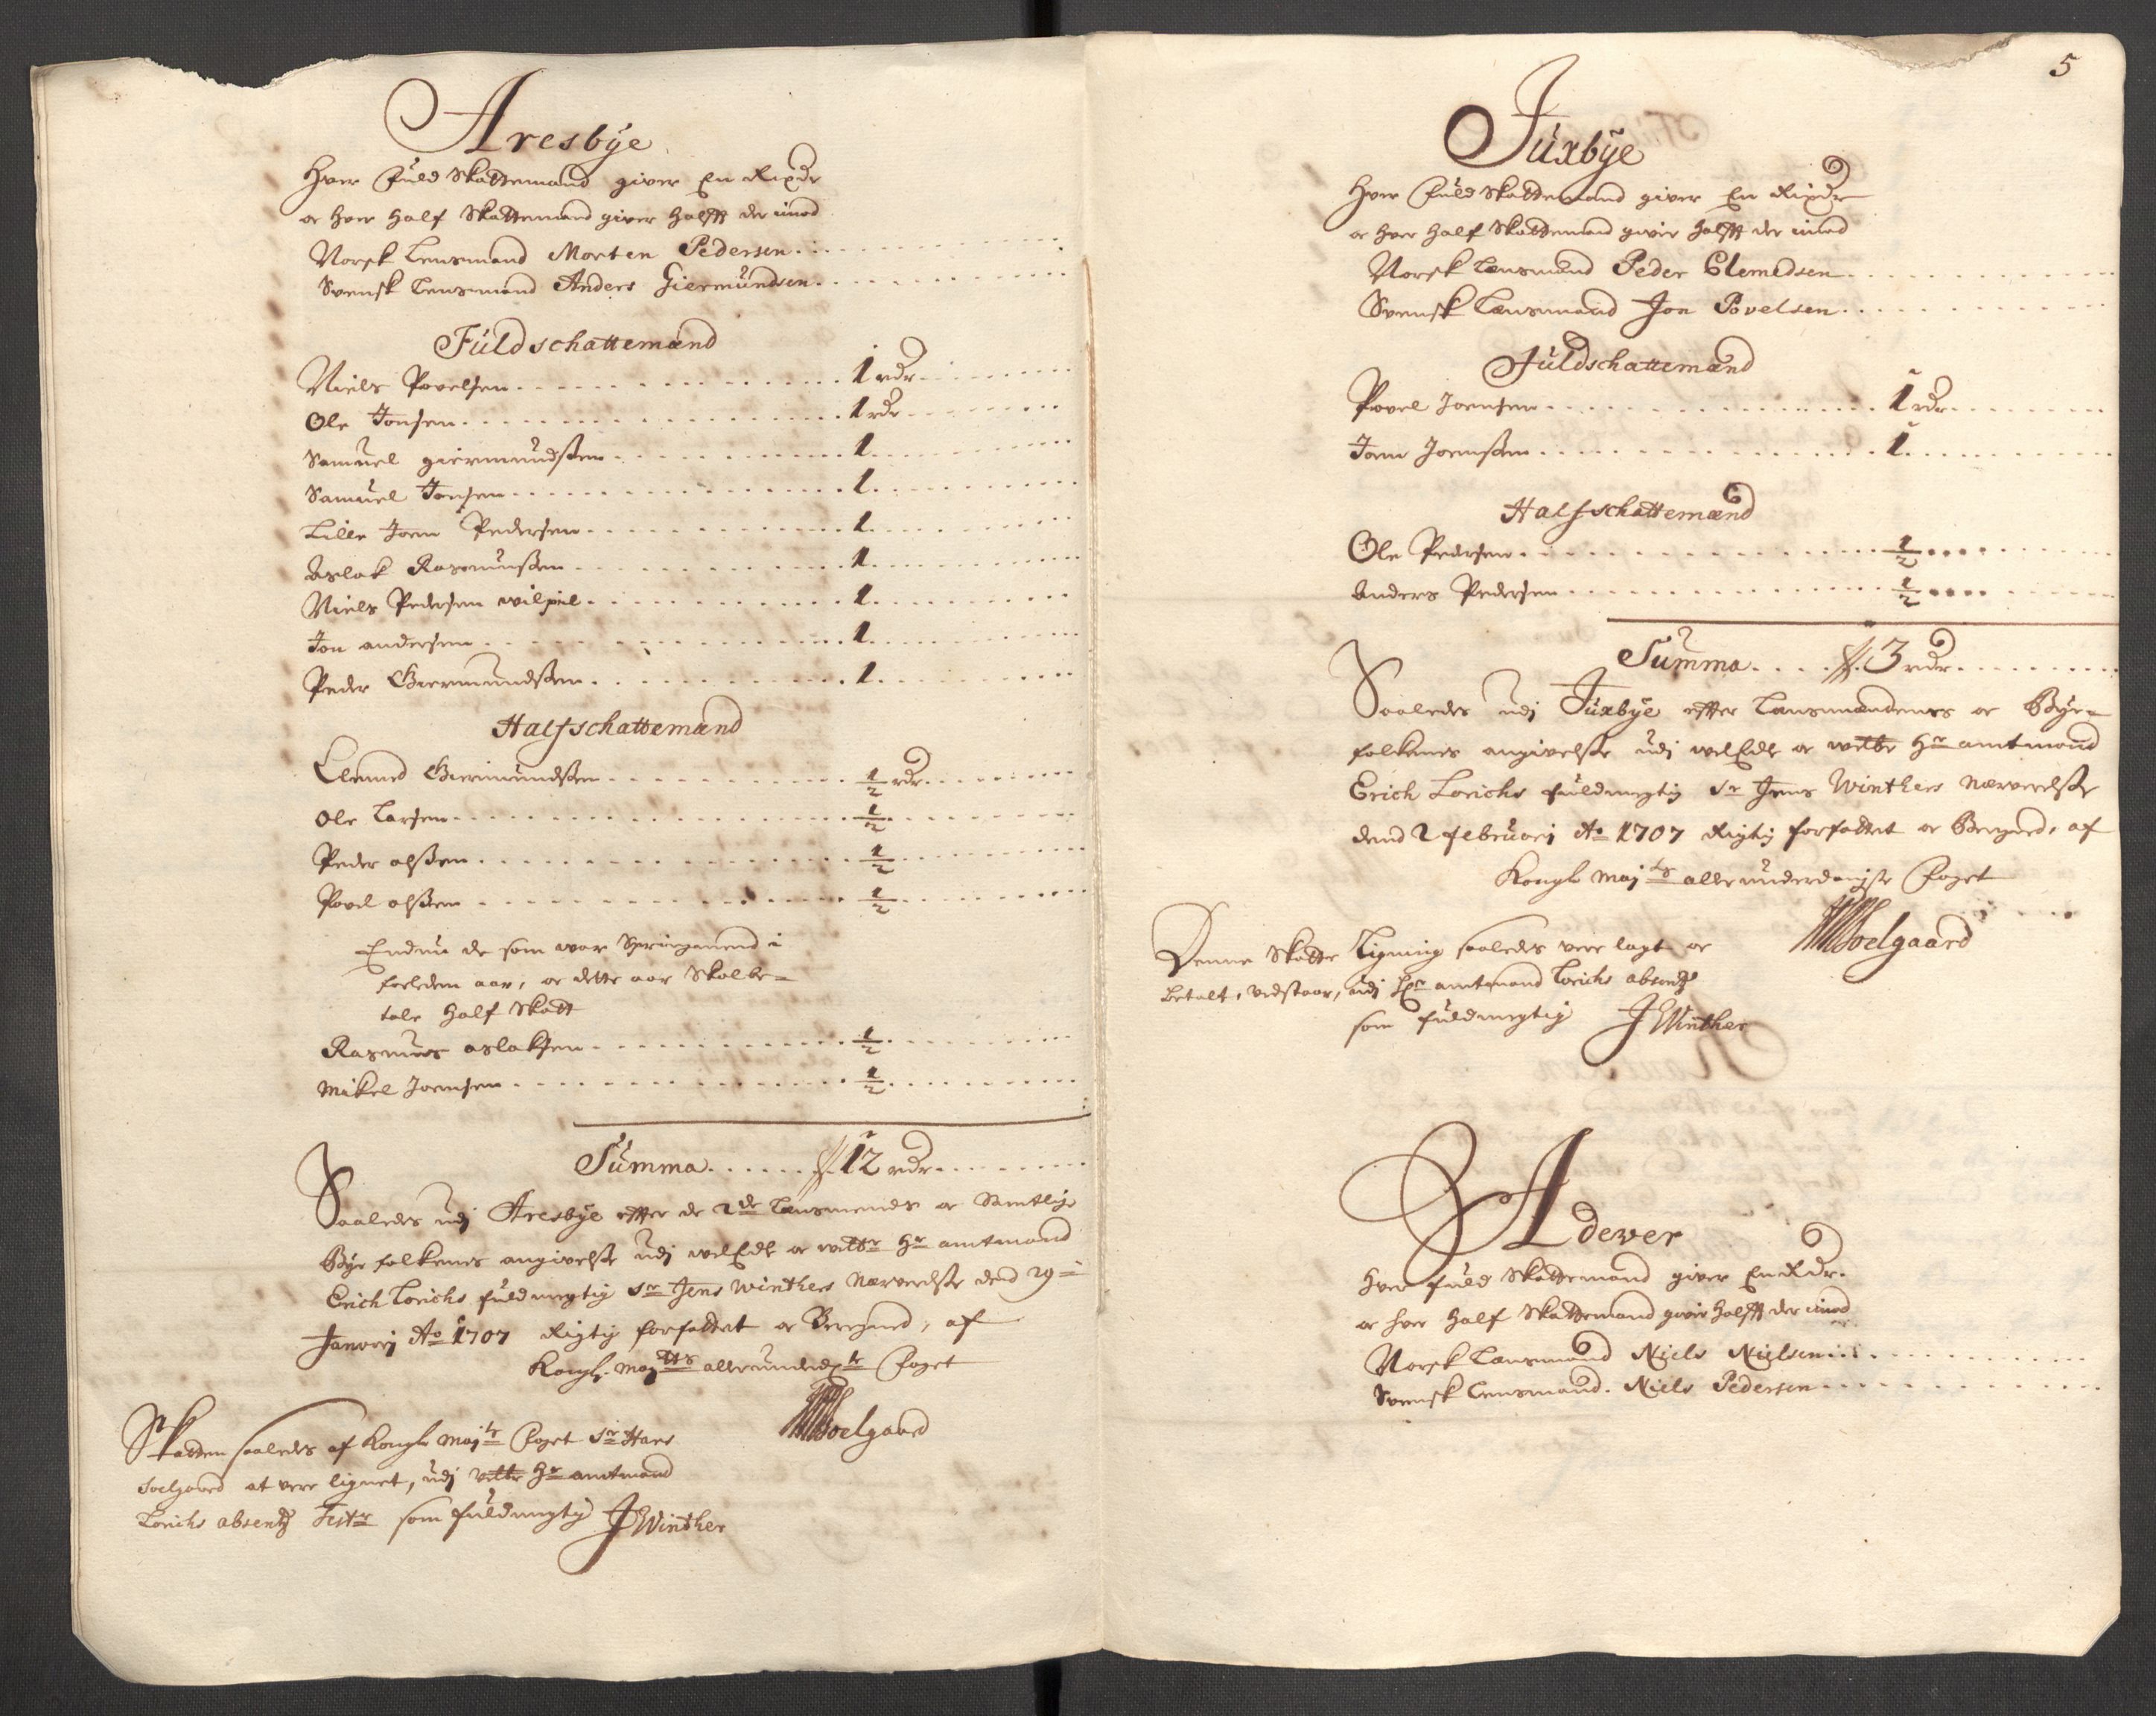 Aresbÿe
Hver Fuld Skattemand giver En Rixdr
oc hver Half Skattemand giver halfft der imod
Norsk Lensmand Morten Pedersen
Svensk Lensmand Anders Giermündsen
Füldschattemænd
Niels Povelsen 1 rdr
Ole Jonsen 1 rdr
Samuel giermundssen 1
Samuel Jonsen 1
Lille Joen Pedersen 1
Aslak Rasmussen 1
Niels Pedersen 1
Jon andersen 1
Peder Giermundssen 1
Halfschattemænd
Clemed Giermundssen 1/2 rdr
Ole Larsen 1/2
Peder olssen 1/2
Povel olssen 1/2
Endnu de som war Springmend i
forleden aar, oc dette aar Skal be-
tale Half Skatt
Rasmus aslaksen 1/2
Mikel Joensen 1/2
Summa 12 rdr
Saaledes udj Aresbÿe effter de 2de Lensmends oc Samtlige
Bÿe folkenes angivelsse udj welEdle oc welbr Hr amtmand
Erich Lorichs fuldmegtig Sr Jens Winthers Nærverelsse dend 29
Janvarj Ao 1707 Rigtig forfattet oc Beregned, af
Kongl. Maytts allerunderdste Foget
Soelgaard
Skatten saaledes af Kongl Majts Foget Sr Hans
Soelgaard at vere lignet, udj welbr Hr amtmand
Lorichs absentz som fuldmegtig JWinther
5
Jüxbÿe
Hver Fuld Skattemand giver En Rixdr
oc hver half Skattemand giver halfft der imod
Norsk Lænsmand Peder Clemedsen
Svensk Lænsmand Jon Povelsen
Füldschattemænd
Povel Joensen 1 rdr
Joen Joenssen 1
Halfschattemænd
Ole Pedersen 1/2
Anders Pedersen 1/2
Summa 3 rdr
Saaledes udj Jüxbÿe effter Lænsmændenes oc Bÿe-
folkenes angivelsse udj welEdle oc welbr Hr amtmand
Erich Lorichs fuldmegtig Sr Jens Winthers Nærverelsse
dend 2 februarj Ao 1707 Rigtig forfattet oc Beregned, af
Kongl Majts allerunderdanigste Foget
Soelgaard
Denne Skatte Ligning saaledes vere lagt oc
betalt, vedstaar, udj Hr amtmand Lorichs absentz
som fuldmegtig JWinther
Adever
Hver fuld Skattemand giver En Rdr.
oc hver half Skattemand giver halfft der imod
Norsk Lænsmand Niels Nielsen
Svensk Lensmand. Niels Pedersen